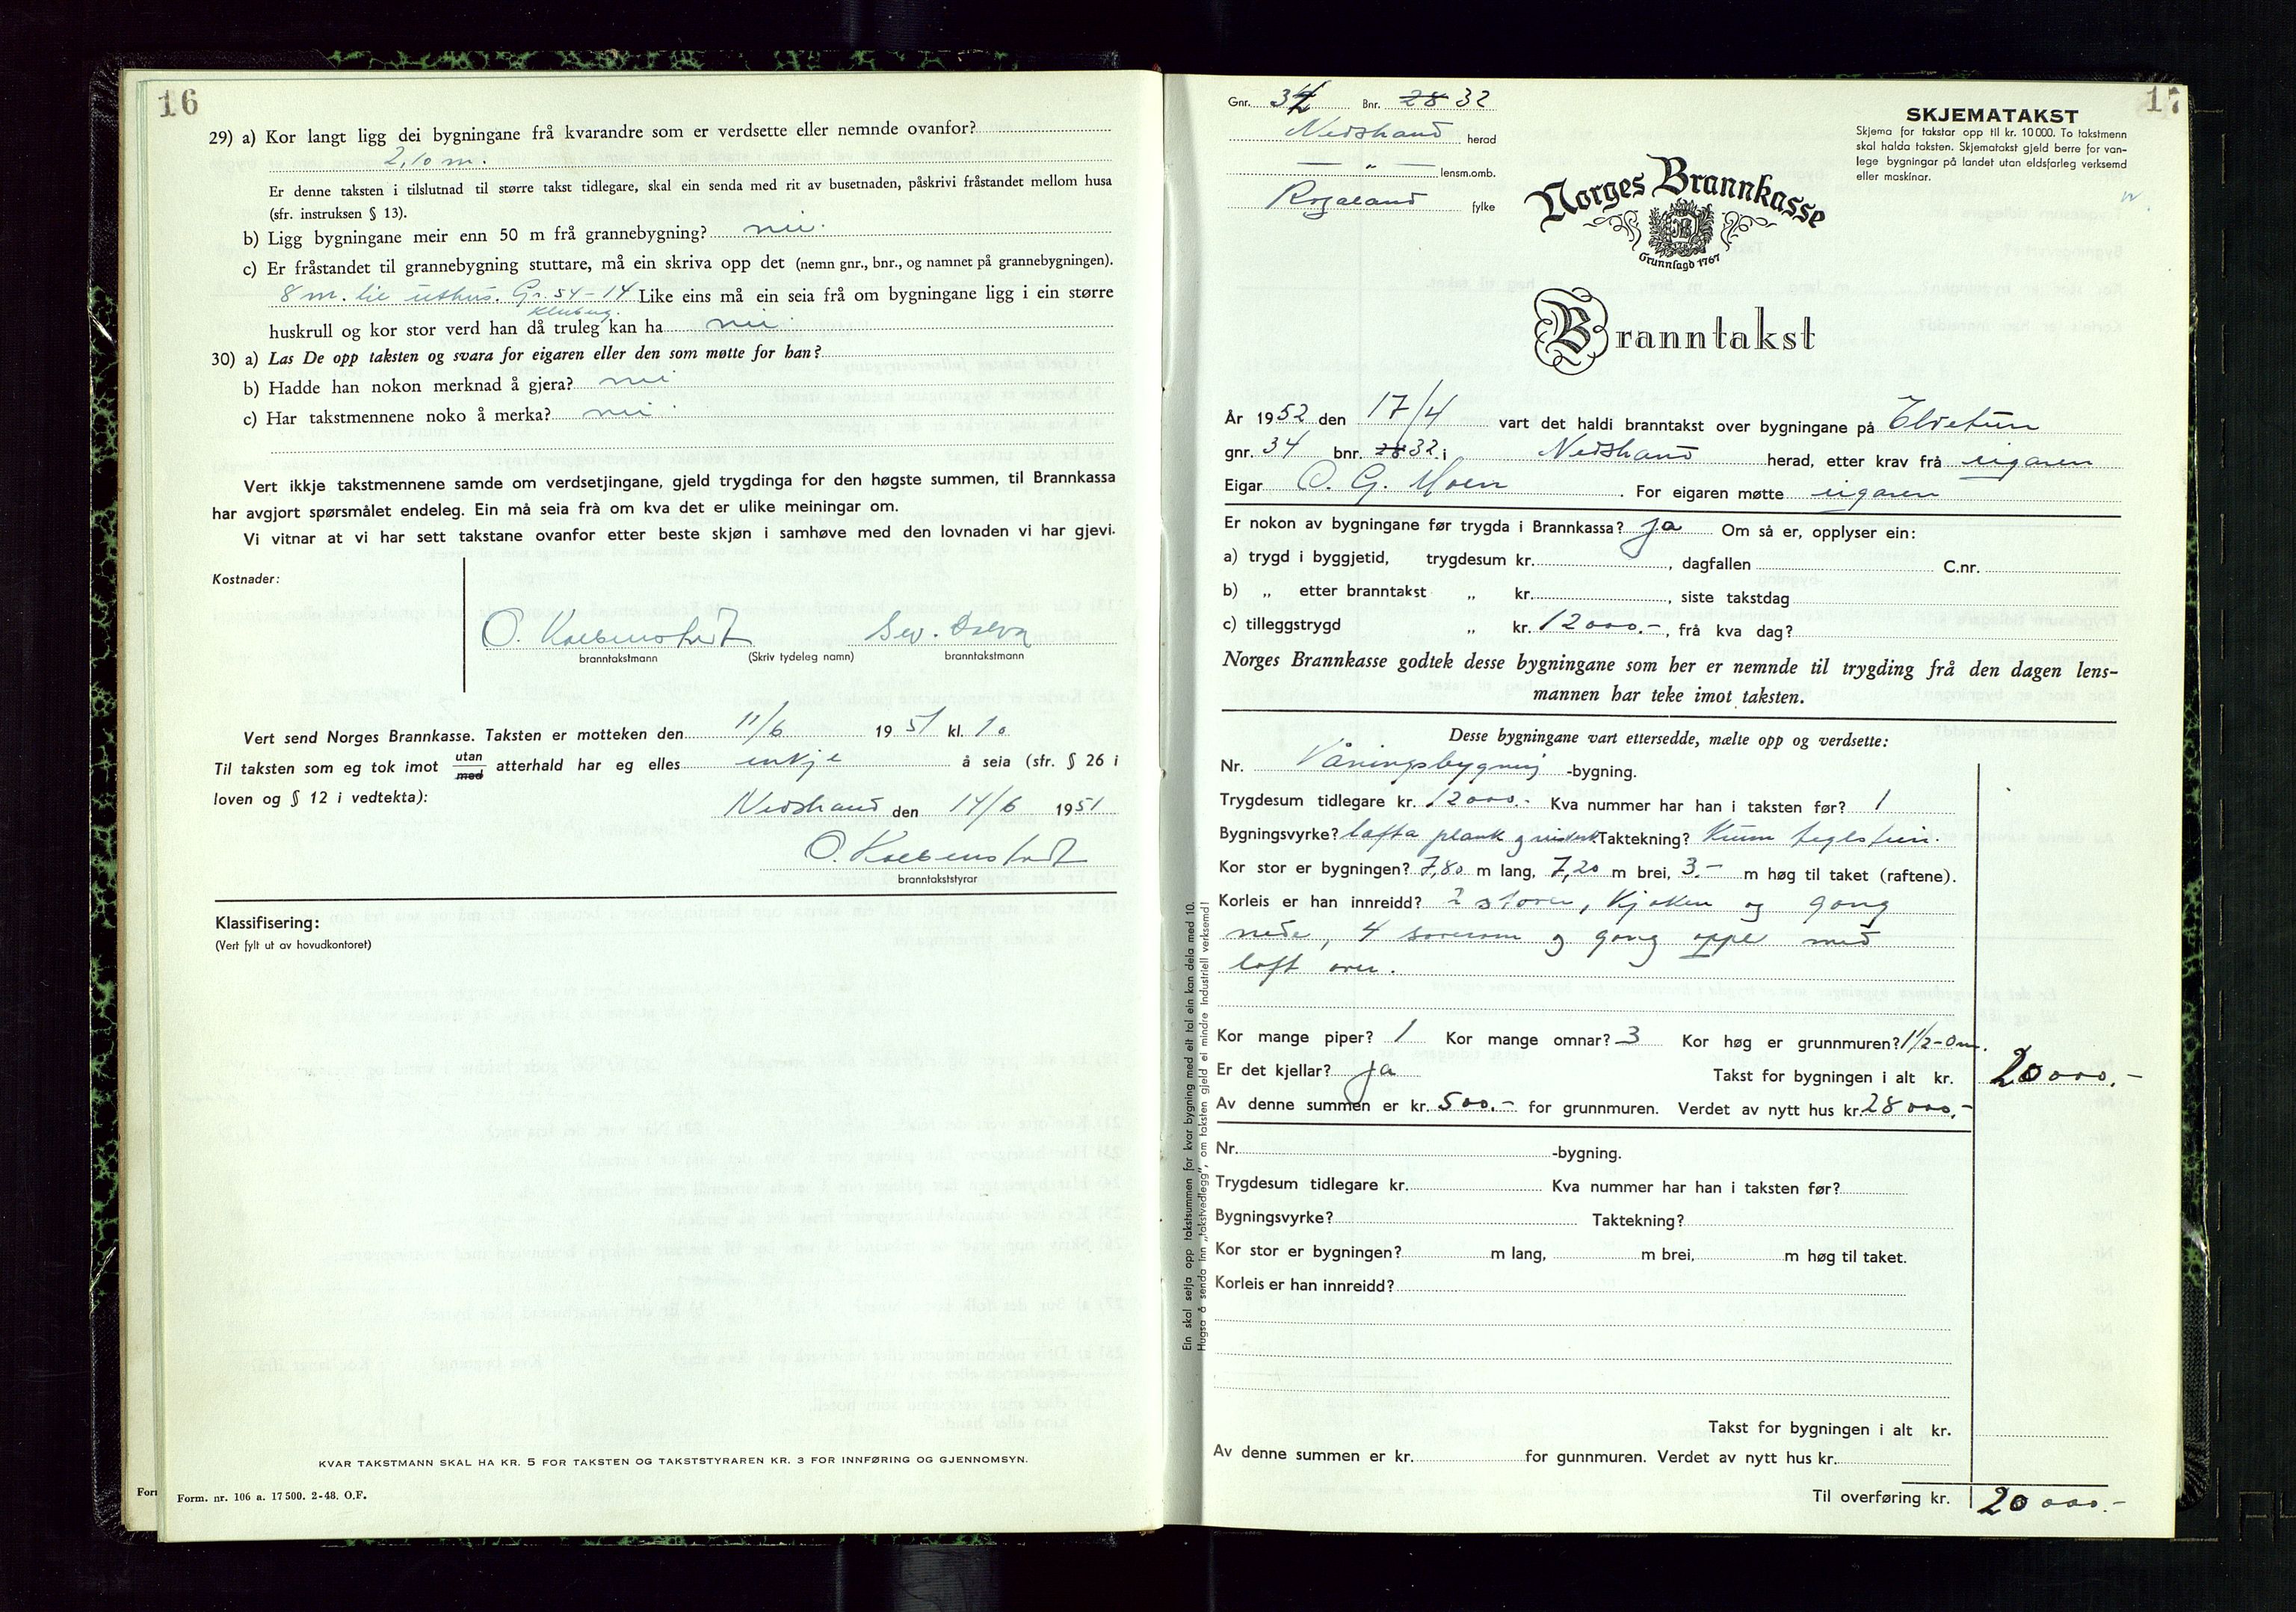 16
29) a) Kor langt ligg dei bygningane frå kvarandre som er verdsette eller nemnde ovanfor?
2,10 m.
Er denne taksten i tilslutnad til større takst tidlegare, skal ein senda med rit av busetnaden, påskrivi fråstandet mellom husa
(sfr. instruksen § 13).
b) Ligg bygningane meir enn 50 m frå grannebygning? nei
c) Er fråstandet til grannebygning stuttare, må ein skriva opp det (nemn gnr., bnr., og namnet på grannebygningen).
8 m. til uthus. Gr. 54-14 Like eins må ein seia frå om bygningane ligg i ein større
huskrull og kor stor verd han då truleg kan ha nei
30) a) Las De opp taksten og svara for eigaren eller den som møtte for han?
b) Hadde han nokon merknad å gjera? nei
c) Har takstmennene noko å merka? nei
Vert ikkje takstmennene samde om verdsetjingane, gjeld trygdinga for den høgste summen, til Brannkassa
har avgjort spørsmålet endeleg. Ein må seia frå om kva det er ulike meiningar om.
Vi vitnar at vi har sett takstane ovanfor etter beste skjøn i samhøve med den lovnaden vi har gjevi.
Kostnader:
branntakstmann (Skriv tydeleg namn) branntakstmann
Vert send Norges Brannkasse. Taksten er motteken den 11/6 1951 kl. 10
Til taksten som eg tok imot utan/med atterhald har eg elles inkje å seia (sfr. § 26 i
loven og § 12 i vedtekta):
Nedstrand den 14/6 1951
branntakststyrar
Klassifisering:
(Vert fylt ut av hovudkontoret)
KVAR TAKSTMANN SKAL HA KR. 5 FOR TAKSTEN OG TAKSTSTYRAREN KR. 3 FOR INNFØRING OG GJENNOMSYN.
Form. nr. 106 a. 17 500. 2-48. O.F.
17
Gnr. 34 Bnr. 28 32
Nedstrand herad
— " — lensm.omb.
Rogaland fylke
SKJEMATAKST
Skjema for takstar opp til kr. 10 000. To takstmenn
skal halda taksten. Skjematakst gjeld berre for van-
lege bygningar på landet utan eldsfarleg verksemd
eller maskinar.
Norges Brannkasse
Grunnlagd 1767
Branntakst
År 1952 den 17/4 vart det haldi branntakst over bygningane på Elvetun
gnr. 34 bnr. 28 32 i Nedstrand herad, etter krav frå eigaren
Eigar O. G. Moen. For eigaren møtte eigaren
Er nokon av bygningane før trygda i Brannkassa? ja Om så er, opplyser ein:
a) trygd i byggjetid, trygdesum kr. , dagfallen C.nr.
b) „ etter branntakst „ kr. , siste takstdag
c) tilleggstrygd „ kr. 12000.-, frå kva dag?
Norges Brannkasse godtek desse bygningane som her er nemnde til trygding frå den dagen lens-
mannen har teke imot taksten.
Desse bygningane vart ettersedde, mælte opp og verdsette:
Nr. Våningsbygning -bygning.
Trygdesum tidlegare kr. 12000.- Kva nummer har han i taksten før? 1
Bygningsvyrke? lafta plank og Taktekning? Krum teglstein.
Kor stor er bygningen? 7,80 m lang, 7,20 m brei, 3.- m høg til taket (raftene).
Korleis er han innreidd? 2 stover, kjøken og gang
nede, 4 soverom og gang oppe med
loft over.
Kor mange piper? 1 Kor mange omnar? 3 Kor høg er grunnmuren? 1½-0 m.
Er det kjellar? ja Takst for bygningen i alt kr. 20000.-
Av denne summen er kr. 500.- for grunnmuren. Verdet av nytt hus kr. 28000.-
Nr. -bygning.
Trygdesum tidlegare kr. Kva nummer har han i taksten før?
Bygningsvyrke? Taktekning?
Kor stor er bygningen? m lang, m brei, m høg til taket.
Korleis er han innreidd?
Takst for bygningen i alt kr.
Av denne summen er kr. for gunnmuren. Verdet av nytt hus kr.
Til overføring kr. 20000.-
Ein skal setja opp takstsummen for kvar bygning med eit tal ein kan dela med 10.
Hugsa å senda inn „takstvedlegg", om taksten gjeld ei mindre industriell verksemd!